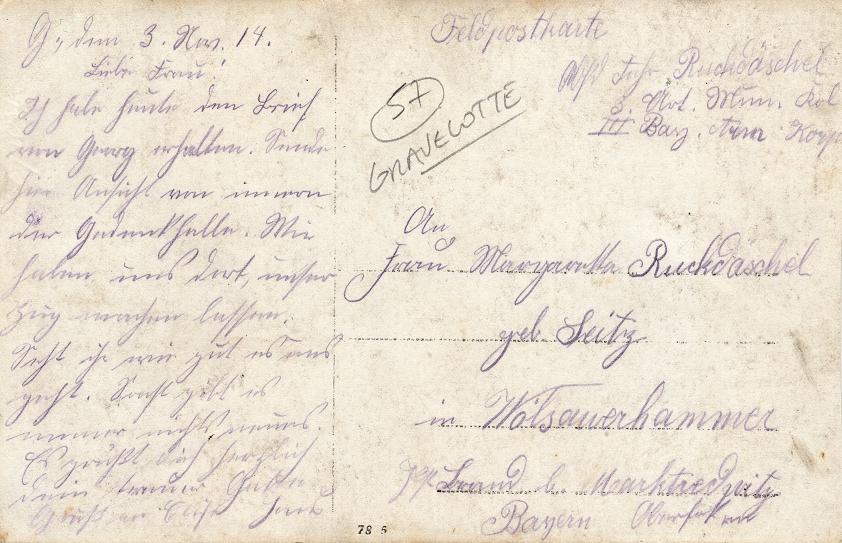 G, den 3. Nov. 14.
Liebe Frau!
Ich habe heute den Brief
von Georg erhalten. Sende
hier Ansicht von innern
der Gedenkhalle. Wir
haben uns dort, unser
Zug machen lassen.
Seht ihr wie gut es uns
geht. Sonst gibt es
immer nichts neues.
Es grüßt dich herzlich
dein treuer Gatte
Gruß an
Feldpostkarte
Abs Fahr Ruckdäschel
3. Art. Mun. Kol
III Bay. Arm Korps
57
GRAVELOTTE
An
Frau Margaretha Ruckdäschel
geb. Seitz
in Wölsauerhammer
Brand b. Marktredwitz
Bayern Oberfranken
78 5